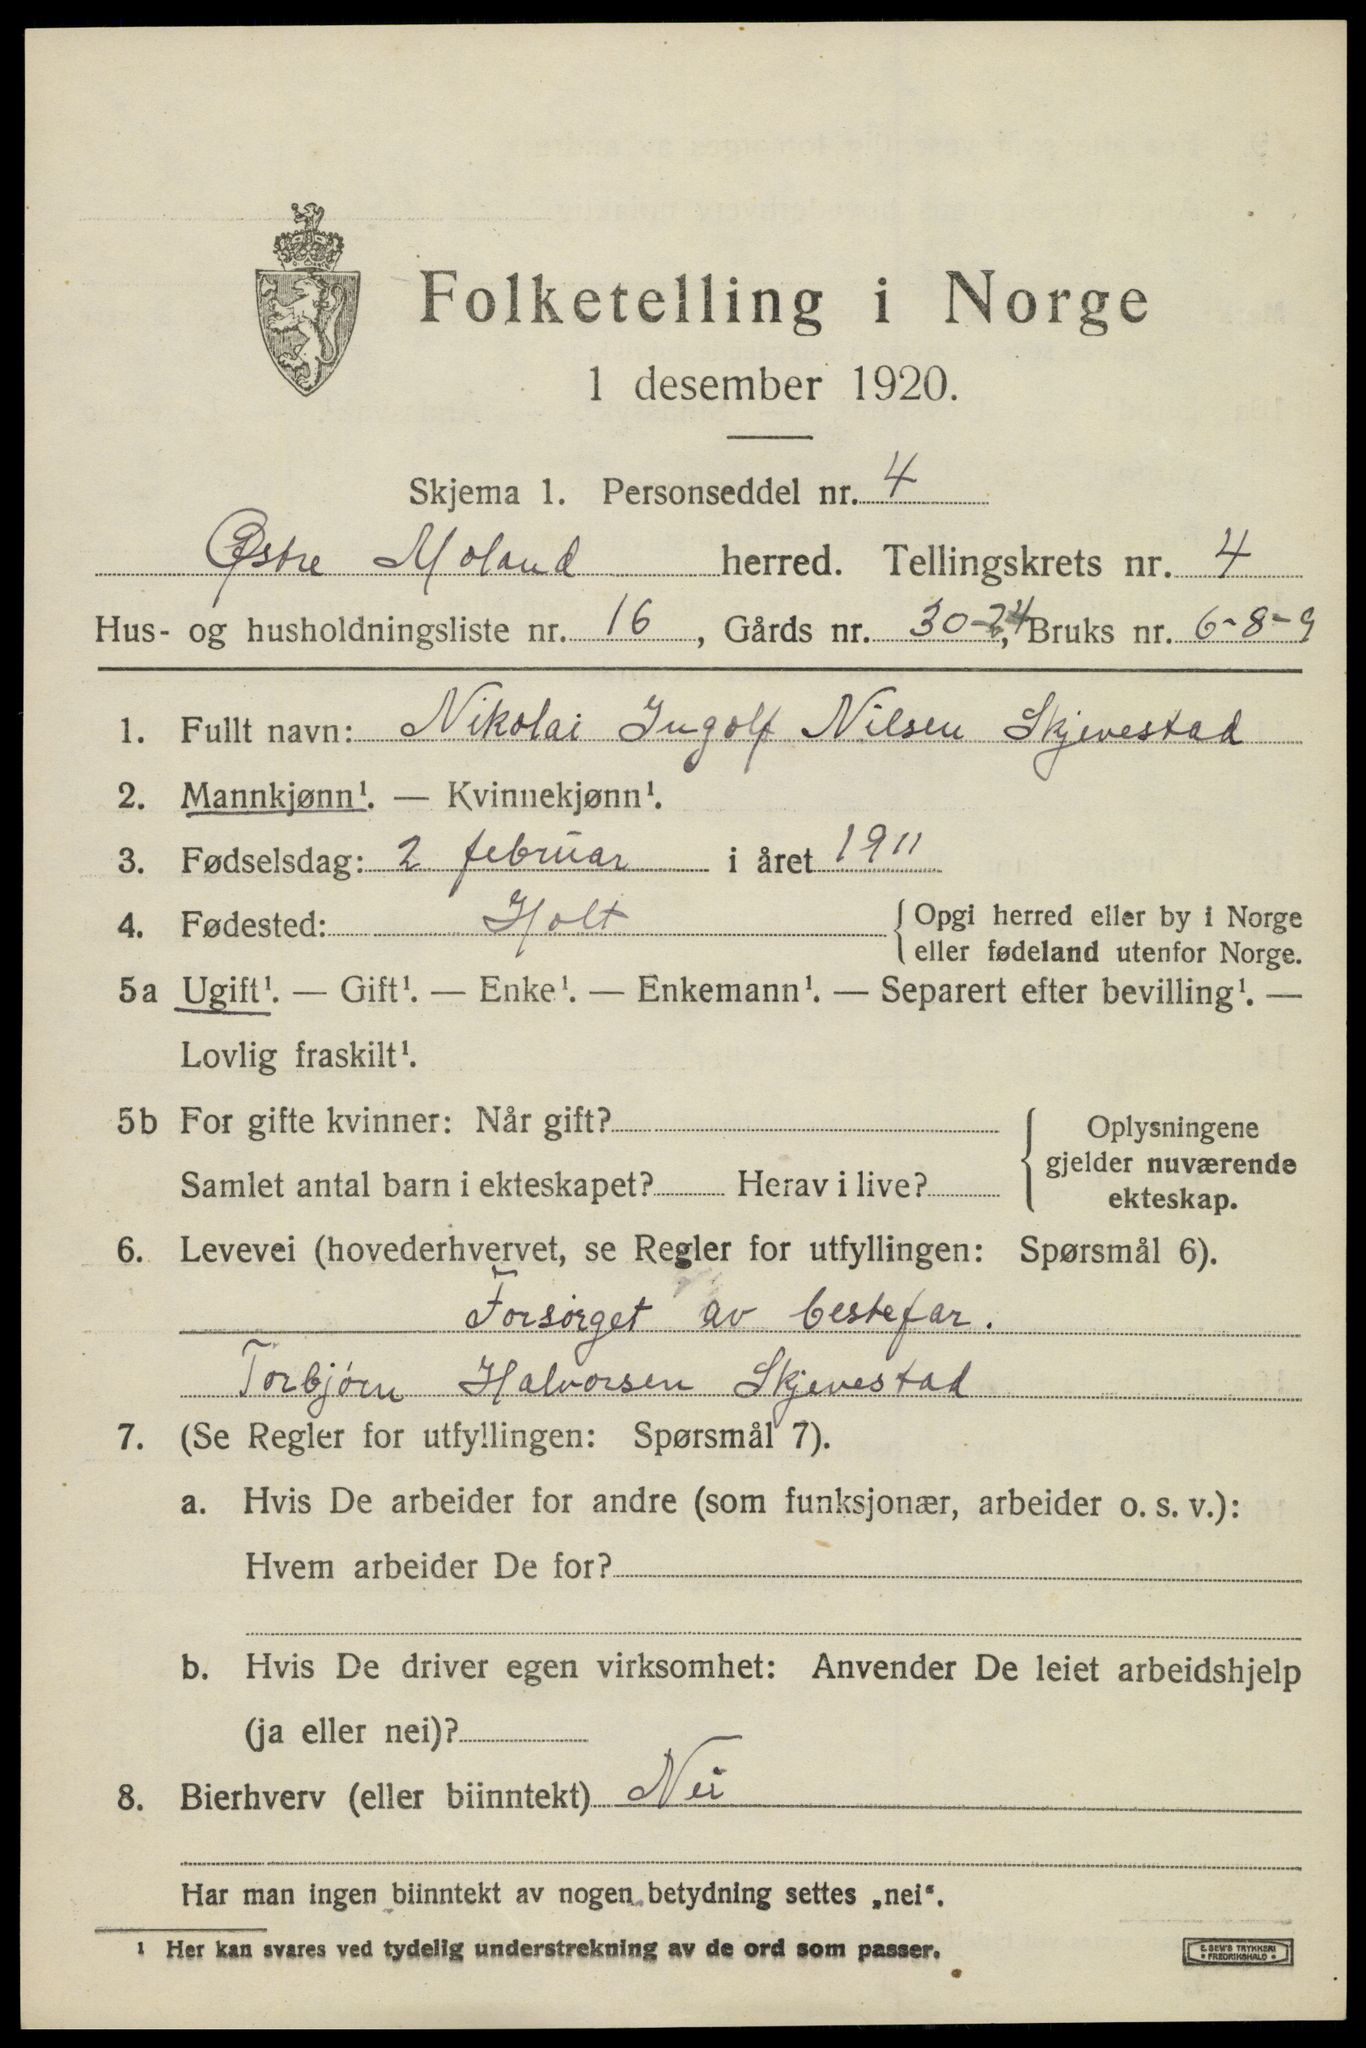 Folketelling i Norge
1 desember 1920.
Skjema 1. Personseddel nr. 4
Østre Moland herred. Tellingskrets nr. 4
Hus- og husholdningsliste nr. 16, Gårds nr. 30-24, Bruks nr. 6-8-9
1. Fullt navn: Nikolai Ingolf Nilsen Skjevestad
2. Mannkjønn¹. — Kvinnekjønn¹.
3. Fødselsdag: 2 februar i året 1911
4. Fødested: Holt { Opgi herred eller by i Norge
eller fødeland utenfor Norge.
5a Ugift¹. — Gift¹. — Enke¹. — Enkemann¹. — Separert efter bevilling¹. —
Lovlig fraskilt¹.
5b For gifte kvinner: Når gift?
Samlet antal barn i ekteskapet? Herav i live?
Oplysningene
gjelder nuværende
ekteskap.
6. Levevei (hovederhvervet, se Regler for utfyllingen: Spørsmål 6).
Forsørget av bestefar.
Torbjørn Halvorsen Skjevestad
7. (Se Regler for utfyllingen: Spørsmål 7).
a. Hvis De arbeider for andre (som funksjonær, arbeider o. s. v.):
Hvem arbeider De for?
b. Hvis De driver egen virksomhet: Anvender De leiet arbeidshjelp
(ja eller nei)?
8. Bierhverv (eller biinntekt) Nei
Har man ingen biinntekt av nogen betydning settes „nei“.
¹ Her kan svares ved tydelig understrekning av de ord som passer.
E. SEM'S TRYKKERI
• FREDRIKSHALD •